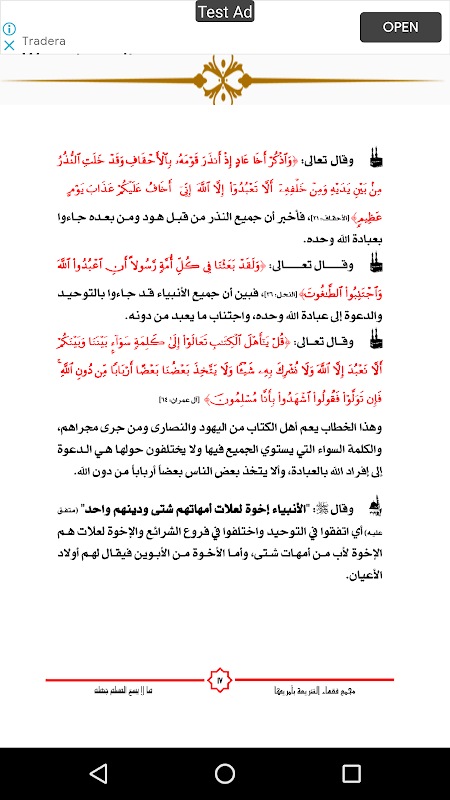 Test Ad
Tradera
OPEN
وقال تعالى: ﴿وَٱذْكُرْ أَخَا عَادٍ إِذْ أَنذَرَ قَوْمَهُۥ بِٱلْأَحْقَافِ وَقَدْ خَلَتِ ٱلنُّذُرُ
مِنۢ بَيْنِ يَدَيْهِ وَمِنْ خَلْفِهِۦٓ أَلَّا تَعْبُدُوٓا۟ إِلَّا ٱللَّهَ إِنِّىٓ أَخَافُ عَلَيْكُمْ عَذَابَ يَوْمٍ
عَظِيمٍ﴾ [الأحقاف:٢١]، فأخبر أن جميع النذر من قبل هود ومن بعده جاءوا
بعبادة الله وحده.
وقال تعالى: ﴿وَلَقَدْ بَعَثْنَا فِى كُلِّ أُمَّةٍ رَّسُولًا أَنِ ٱعْبُدُوا۟ ٱللَّهَ
وَٱجْتَنِبُوا۟ ٱلطَّٰغُوتَ﴾ [النحل:٣٦]، فبين أن جميع الأنبياء قد جاءوا بالتوحيد
والدعوة إلى عبادة الله وحده، واجتناب ما يعبد من دونه.
وقال تعالى: ﴿قُلْ يَٰٓأَهْلَ ٱلْكِتَٰبِ تَعَالَوْا۟ إِلَىٰ كَلِمَةٍ سَوَآءٍۭ بَيْنَنَا وَبَيْنَكُمْ
أَلَّا نَعْبُدَ إِلَّا ٱللَّهَ وَلَا نُشْرِكَ بِهِۦ شَيْـًٔا وَلَا يَتَّخِذَ بَعْضُنَا بَعْضًا أَرْبَابًا مِّن دُونِ ٱللَّهِ ۚ
فَإِن تَوَلَّوْا۟ فَقُولُوا۟ ٱشْهَدُوا۟ بِأَنَّا مُسْلِمُونَ﴾ [آل عمران:٦٤]
وهذا الخطاب يعم أهل الكتاب من اليهود والنصارى ومن جرى مجراهم،
والكلمة السواء التي يستوي الجميع فيها ولا يختلفون حولها هي الدعوة
إلى إفراد الله بالعبادة، وألا يتخذ بعض الناس بعضاً أرباباً من دون الله.
وقال ﷺ: "الأنبياء إخوة لعلات أمهاتهم شتى ودينهم واحد" (متفق
عليه) أي اتفقوا في التوحيد واختلفوا في فروع الشرائع والإخوة لعلات هم
الإخوة لأب من أمهات شتى، وأما الأخوة من الأبوين فيقال لهم أولاد
الأعيان.
مجمع فقهاء الشريعة بأمريكا
١٧
ما لا يسع المسلم جهله